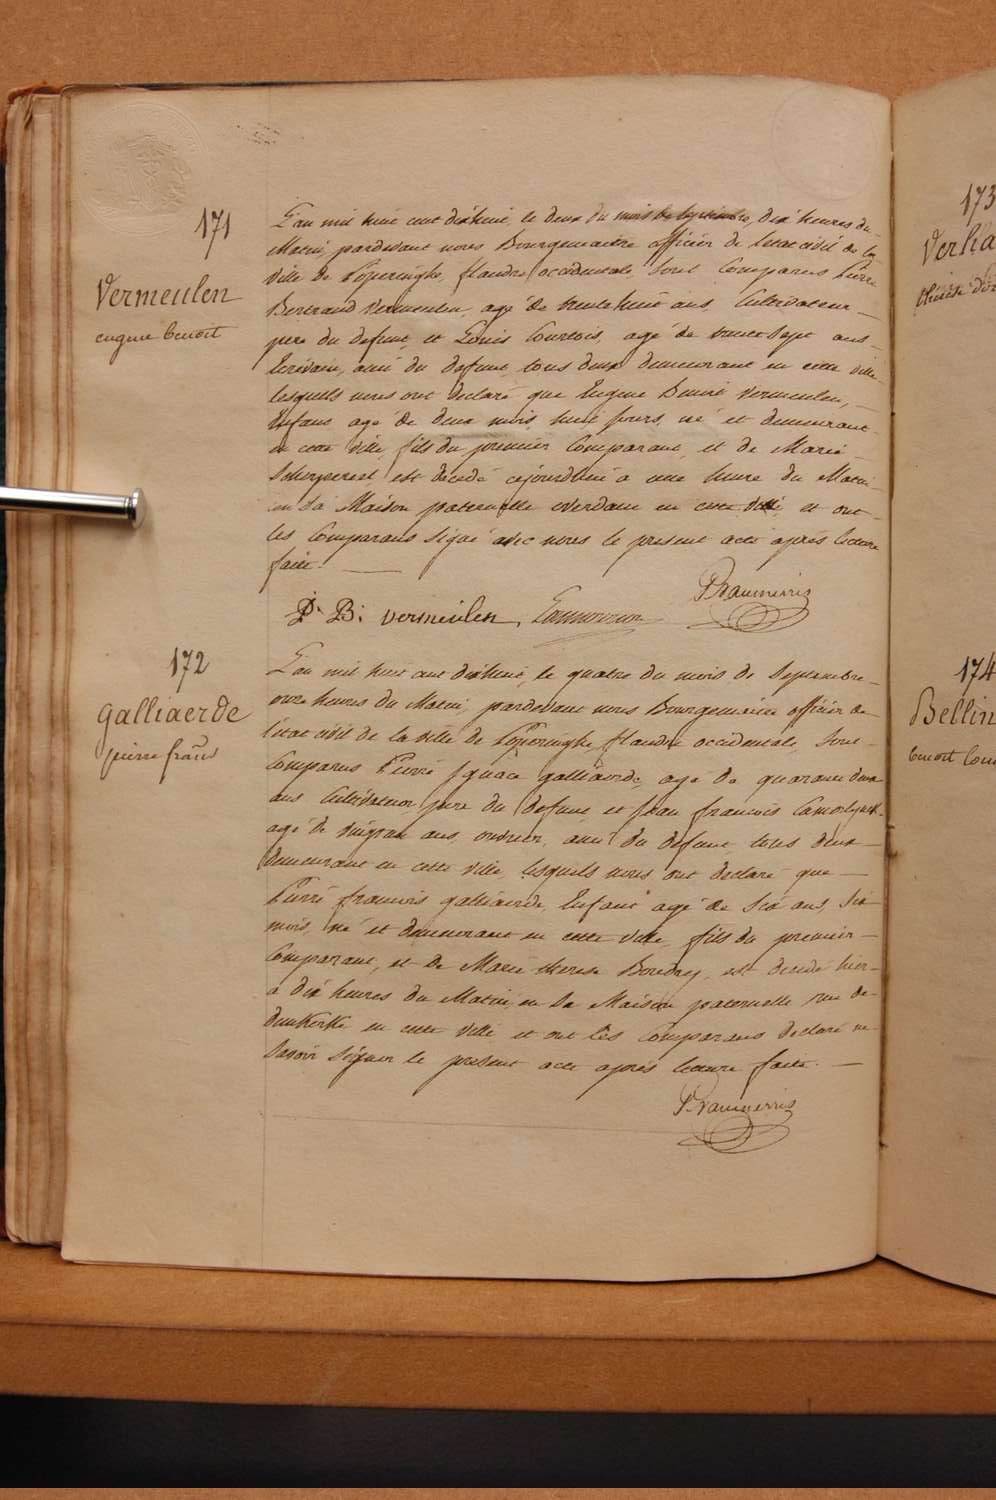 171
Vermeulen
eugene benoit
L'an mil huit cent dixhuit le deux du mois de Septembre, dix heures du
Matin, pardevant nous Bourgemaitre officier de letat civil de la
ville de Poperinghe, flandre occidentale, sont Comparus Pierre
Bertrand Vermeulen, agé de trente huit ans, Cultivateur
pere du defunt, et Louis Courtois, agé de trente sept ans
Ecrivain, ami du defunt, tous deux demeurant en cette ville
lesquels nous ont declaré que Eugene Benoit Vermeulen,
Enfant agé de deux mois, huit jours, né et demeurant
en cette ville, fils du premier Comparant, et de Marie
est decedé cejourdhui a une heure du Matin
en sa Maison paternelle en cette ville et ont
les Comparans signé avec nous le present acte apres lecture
faite.
P. B. vermeulen,
172
galliaerde
pierre frans
L'an mil huit cent dixhuit, le quatre du mois de Septembre
onze heures du Matin, pardevant nous Bourgemaitre officier de
letat civil de la ville de Poperinghe, flandre occidentale, sont
Comparus Pierre Ignace galliaerde, agé de quarante deux
ans Cultivateur, pere du defunt, et Jean francois
agé de vingt ans, ouvrier, ami du defunt, tous deux
demeurant en cette ville, lesquels nous ont declaré que
Pierre francois galliaerde, Enfant agé de six ans, six
mois, né et demeurant en cette ville, fils du premier
Comparant, et de Marie therese Boudrey, est decedé hier
a dix heures du Matin, en sa Maison paternelle rue de
dunkerke en cette ville et ont les Comparans declaré ne
savoir signer le present acte apres lecture faite.
173
Verha
174
Bellin
benoit Loui